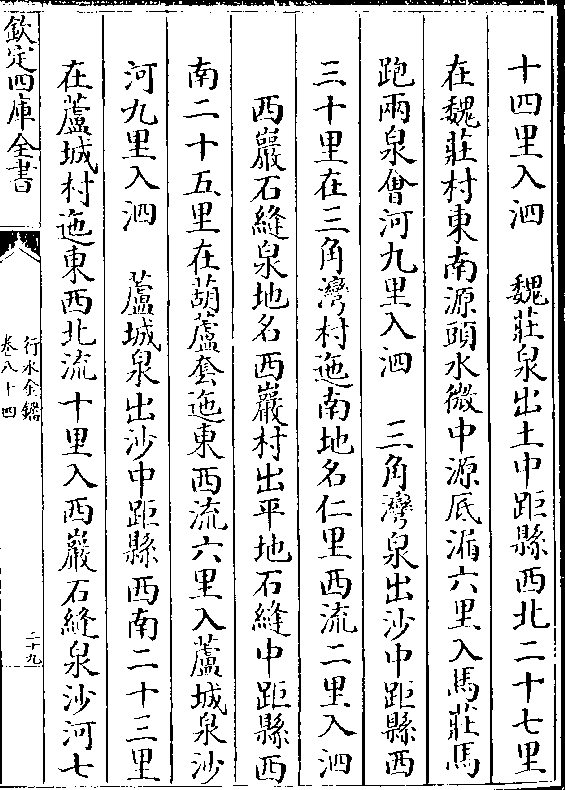 十四里入泗　魏莊泉出土中距縣西北二十七里
在魏莊村東南源頭水微中源底漘六里入馬莊馬
跑兩泉會河九里入泗　三角灣泉出沙中距縣西
三十里在三角灣村迤南地名仁里西流二里入泗
西巖石縫泉地名西巖村出平地石縫中距縣西
南二十五里在葫蘆套迤東西流六里入蘆城泉沙
河九里入泗　蘆城泉出沙中距縣西南二十三里
在蘆城村迤東西北流十里入西巖石縫泉沙河七
欽定四庫全書
行水金鑑
卷八十四
二十九